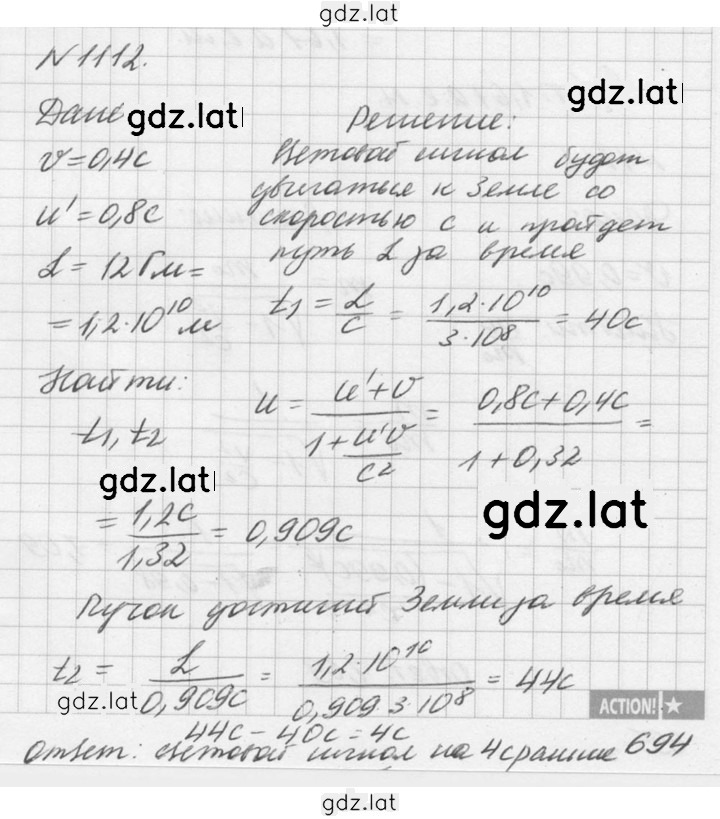 gdz.lat
N 1112.
Дано gdz.lat Решение: gdz.lat
v = 0,4c Световой сигнал будет
двигаться к Земле со
u' = 0,8c скоростью c и пройдет
L = 12 Гм = путь L за время
= 1,2·10^10 м t1 = L/c = 1,2·10^10 / 3·10^8 = 40c
Найти: u = (u'+v) / (1 + u'v/c²) = (0,8c+0,4c) / (1+0,32) =
t1, t2
gdz.lat
= 1,2c / 1,32 = 0,909c gdz.lat
Пучок достигнет Земли за время
t2 = L / 0,909c = 1,2·10^10 / 0,909·3·10^8 = 44c
gdz.lat ACTION!
44c – 40c = 4c
Ответ: световой сигнал на 4с раньше 694
gdz.lat